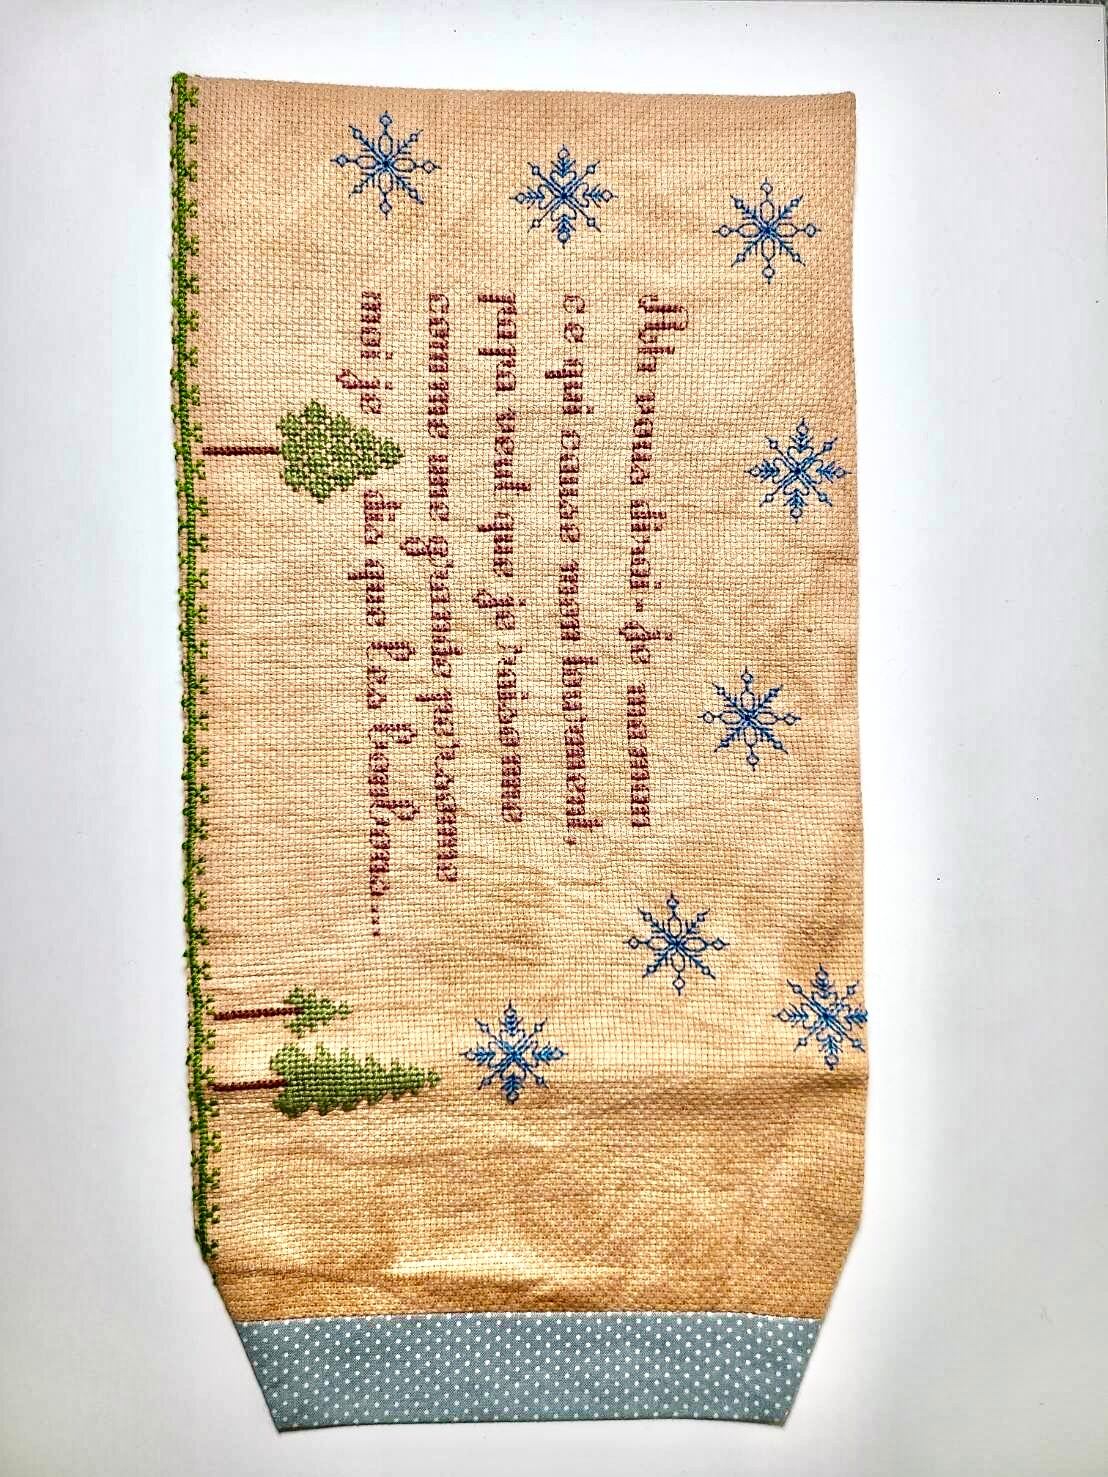 Ah vous dirai-je maman
ce qui cause mon tourment,
papa veut que je raisonne
comme une grande personne
moi je dis que les bonbons...